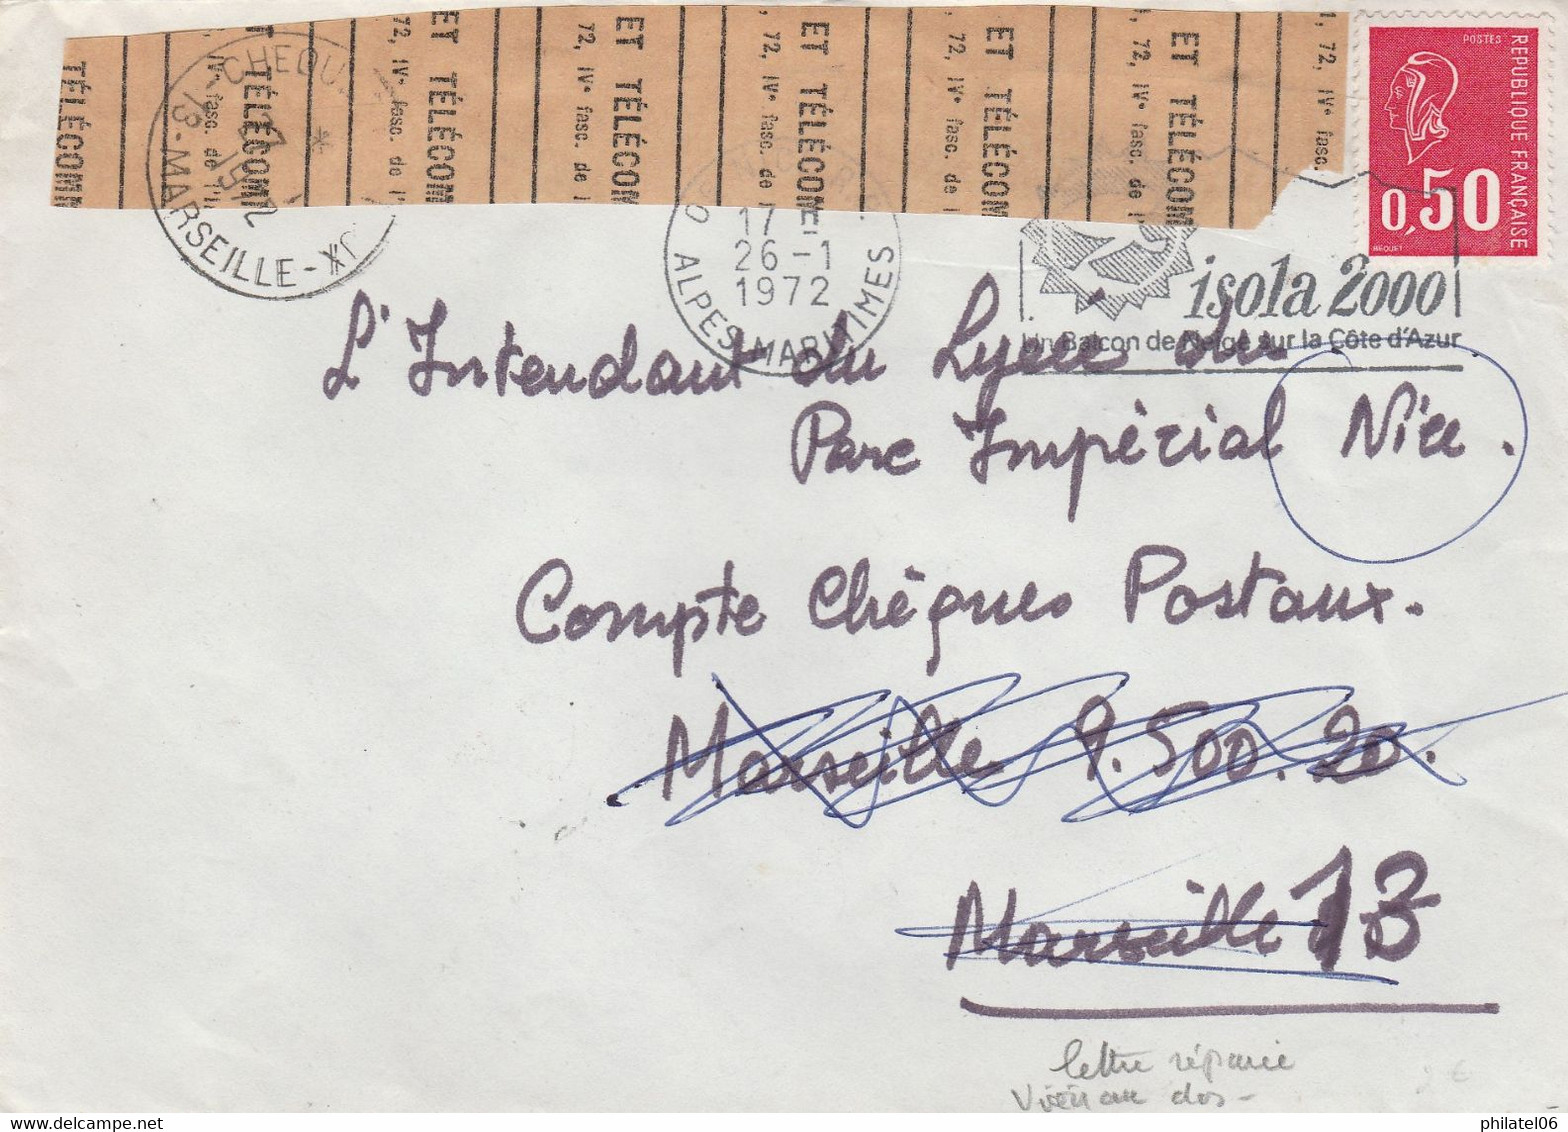 TÉLÉCOM
ET TÉLÉCOM
ET TÉLÉCOM
ET TÉLÉCOM
ET TÉLÉCOM
ET TÉLÉCOM
ET TÉLÉCOM
IVe fasc. de l'I
72, IVe fasc. de l'
72, IVe fasc. de l
72, IVe fasc. de l
72, IVe fasc. de l
72, IVe fasc. de l'
1, 72, IVe fasc.
CHEQU
13-MARSEILLE-
27
1
1972
*
POSTES
REPUBLIQUE FRANÇAISE
0,50
BEQUET
17 H
26-1
1972
ALPES-MARITIMES
isola 2000
Un Balcon de Neige sur la Côte d'Azur
L'Intendant du Lycée du
Parc Impérial Nice.
Compte Chèques Postaux.
Marseille 9.500.20.
Marseille 13
lettre réparée
au dos-
philatel06